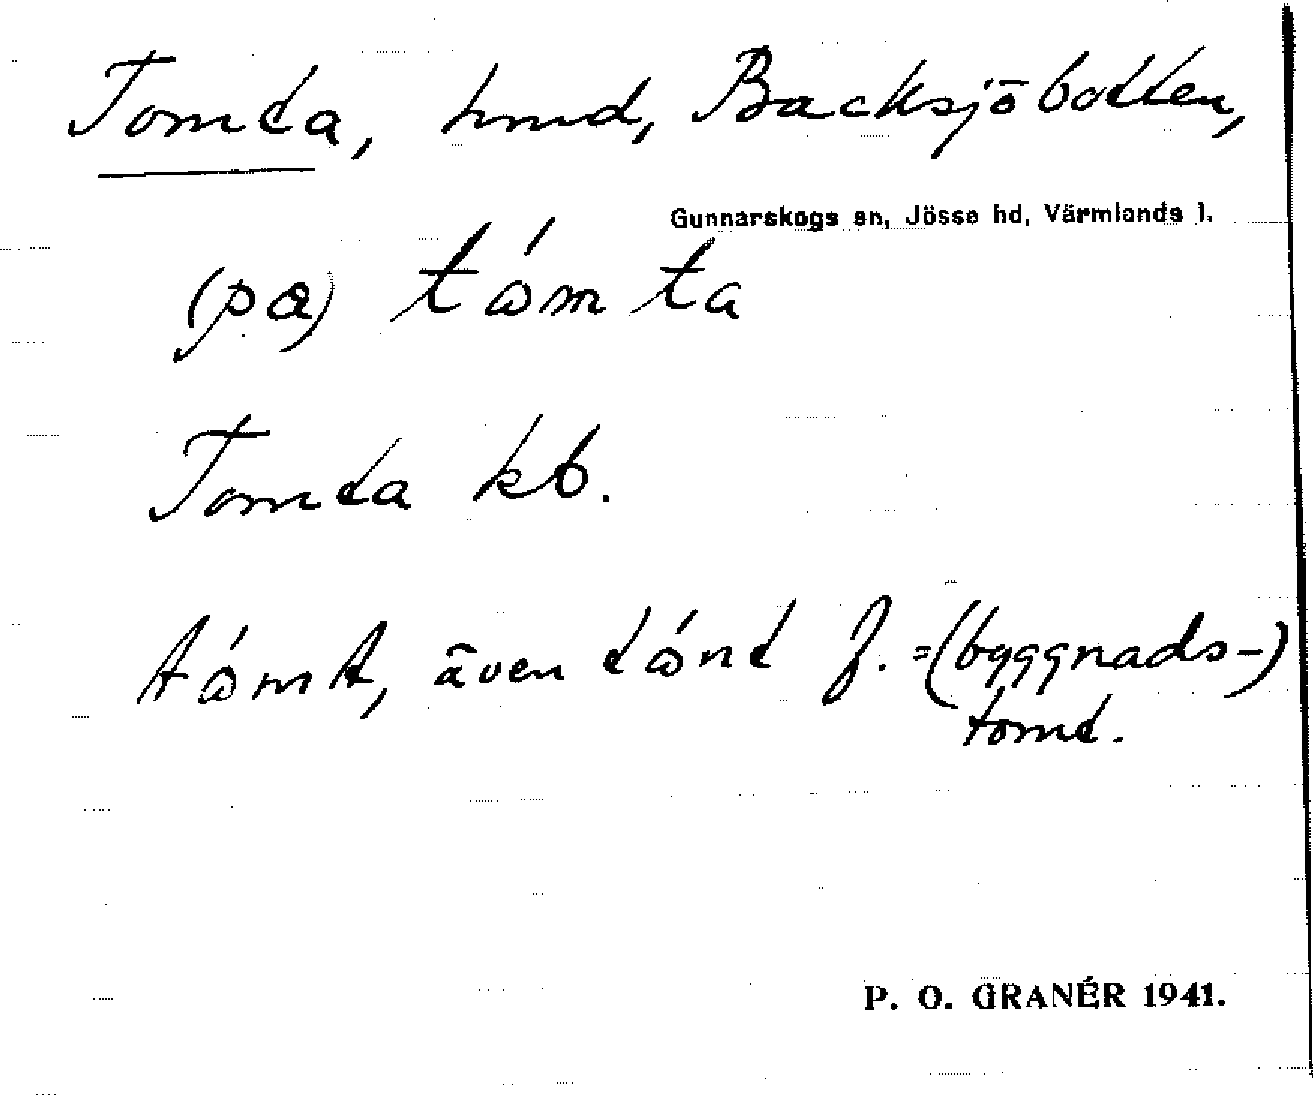 Tomta, hmd, Backsjöbotten,
Gunnarskogs sn, Jösse hd, Värmlands l.
(pα) tώmta
Tomta kb.
tώmt, även tώnt f. = (byggnads-)
tomt.
P. O. GRANÉR 1941.